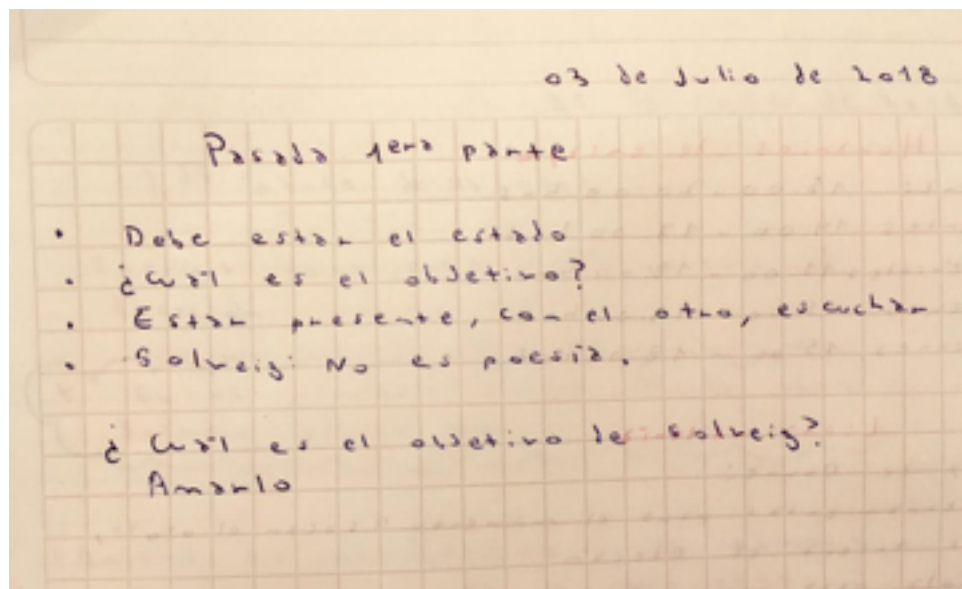 03 de Julio de 2018
Pasada 1era parte
· Debe estar el estado
· ¿Cuál es el objetivo?
· Estar presente, con el otro, escuchar
· Solveig: No es poesía.
¿Cuál es el objetivo de Solveig?
Amarlo